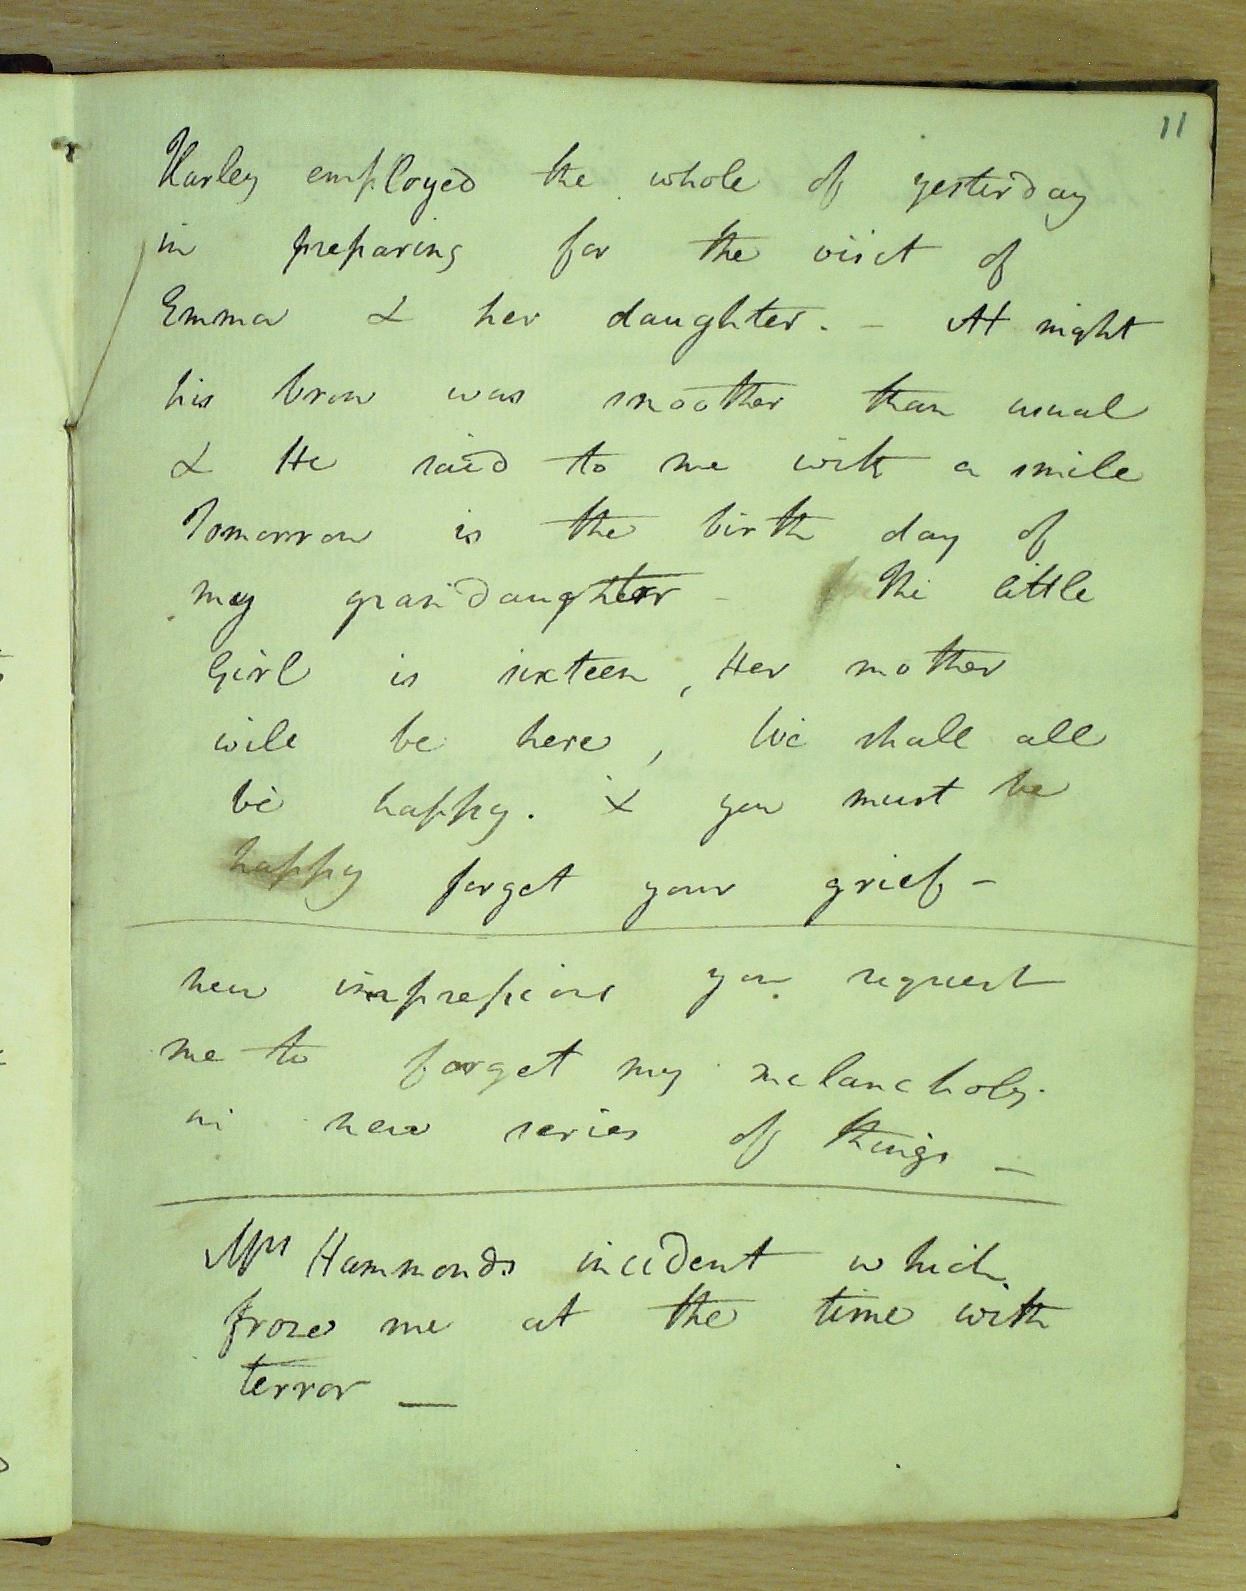 11
Harley employed the whole of yesterday
in preparing for the visit of
Emma & her daughter. – At night
his brow was smoother than usual
& He said to me with a smile
Tomorrow is the birth day of
my grandaughter – The little
Girl is sixteen, Her mother
will be here, We shall all
be happy. & you must be
happy forget your grief –
new impressions you request
me to forget my melancholy.
in new series of things –
Mrs Hammonds incident which
froze me at the time with
terror —